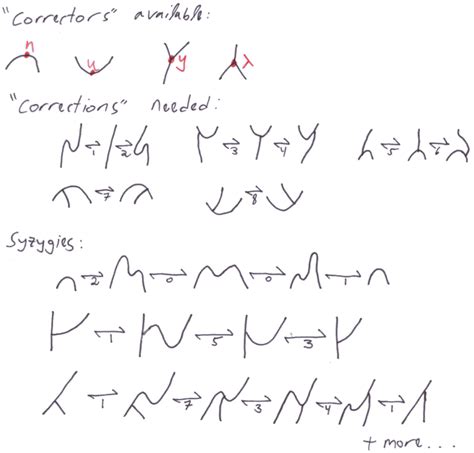 "Correctors" available:
n u y λ
"Corrections" needed:
1 2 3 4 5 6
7 8
Syzygies:
2 0 0 1
1 5 3
1 7 3 4 1
+ more...